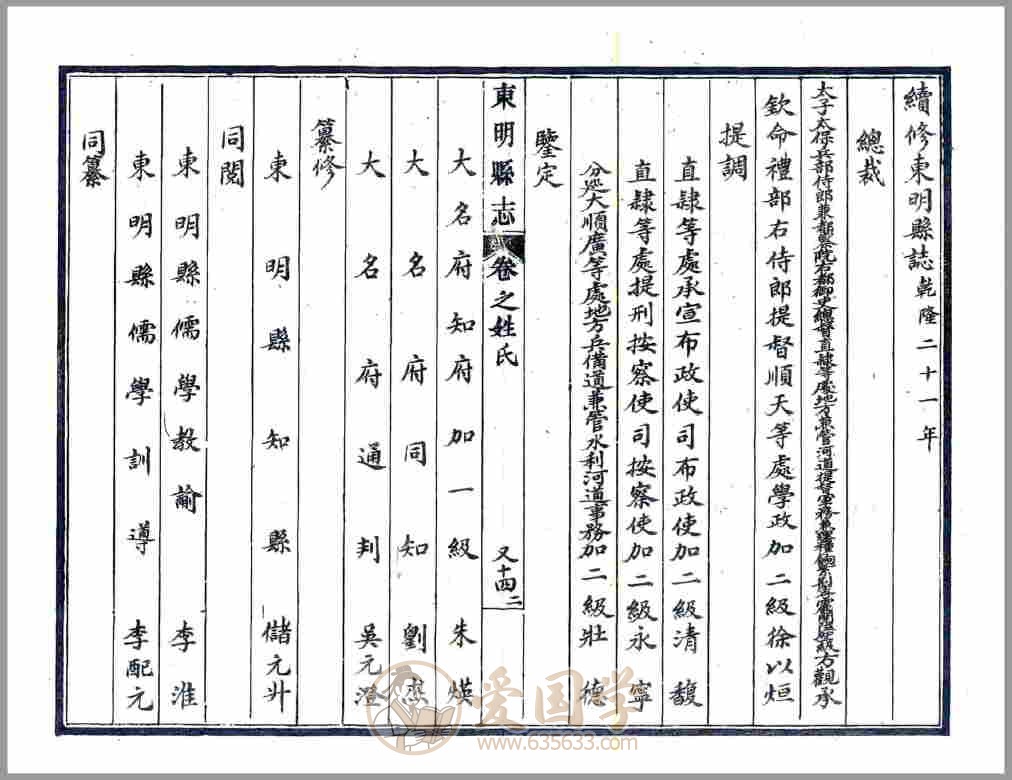 續修東明縣誌乾隆二十一年
總裁
太子太保兵部侍郎兼都察院右都御史總督直隸等處地方兼管河道提督軍務兼理糧餉方觀承
欽命禮部右侍郎提督順天等處學政加二級徐以烜
提調
直隸等處承宣布政使司布政使加二級清馥
直隸等處提刑按察使司按察使加二級永寧
分巡大順廣等處地方兵備道兼管水利河道事務加二級壯德
東明縣志 卷之姓氏 又十四二
鑒定
大名府知府加一級朱煐
大名府同知劉杰
大名府通判吳元澄
纂修
東明縣知縣儲元升
同閱
東明縣儒學教諭李淮
東明縣儒學訓導李配元
同纂
爱国学
www.635633.com